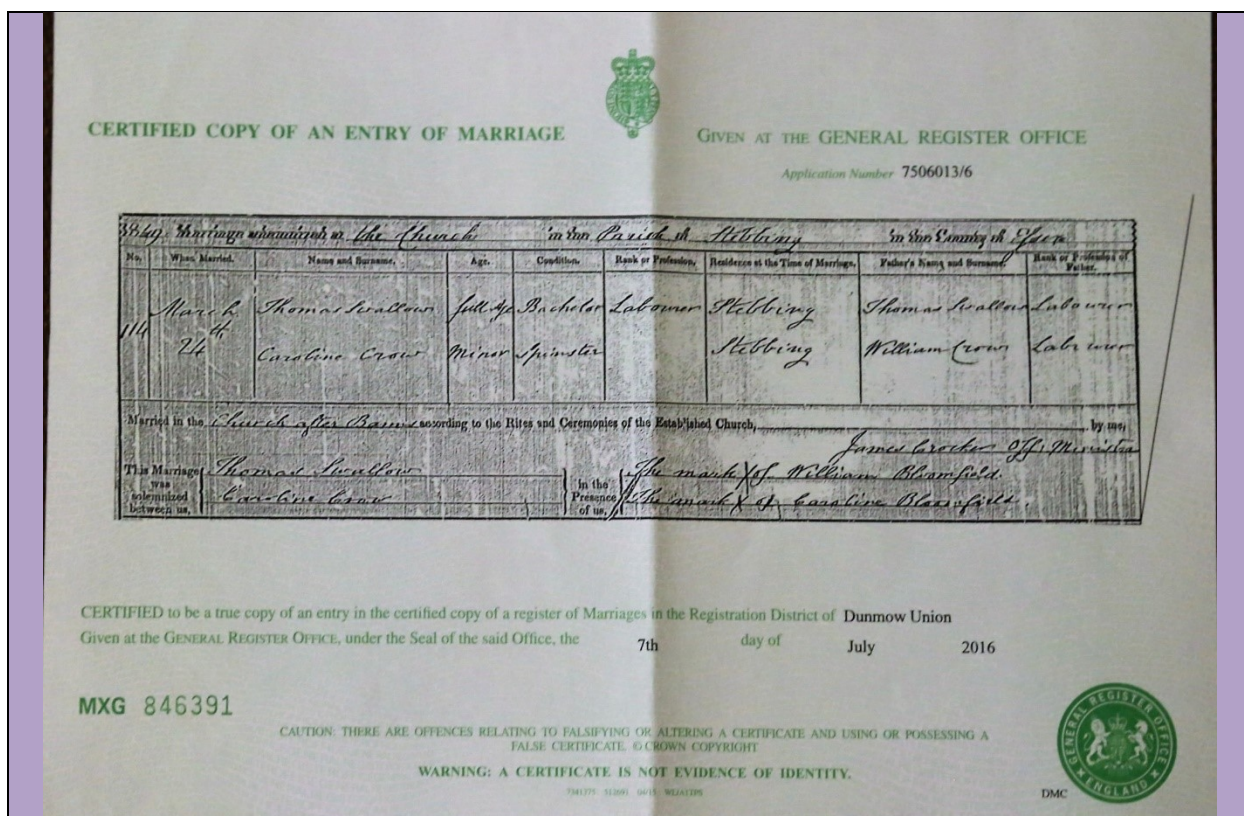 CERTIFIED COPY OF AN ENTRY OF MARRIAGE
GIVEN AT THE GENERAL REGISTER OFFICE
Application Number 7506013/6
1849. Marriage solemnized at the Church in the Parish of Stebbing in the County of Essex
No. When Married. Name and Surname. Age. Condition. Rank or Profession. Residence at the Time of Marriage. Father's Name and Surname. Rank or Profession of Father.
114 March 24 Thomas Swallow full age Bachelor Labourer Stebbing Thomas Swallow Labourer
Caroline Crow Minor Spinster Stebbing William Crow Labourer
Married in the Church after Banns according to the Rites and Ceremonies of the Established Church, by me,
James Crocker Off. Minister
This Marriage was solemnized between us, Thomas Swallow
Caroline Crow
in the Presence of us, The mark X of William Bloomfield.
The mark X of Caroline Bloomfield.
CERTIFIED to be a true copy of an entry in the certified copy of a register of Marriages in the Registration District of Dunmow Union
Given at the GENERAL REGISTER OFFICE, under the Seal of the said Office, the 7th day of July 2016
MXG 846391
CAUTION: THERE ARE OFFENCES RELATING TO FALSIFYING OR ALTERING A CERTIFICATE AND USING OR POSSESSING A
FALSE CERTIFICATE. © CROWN COPYRIGHT
WARNING: A CERTIFICATE IS NOT EVIDENCE OF IDENTITY.
DMC
GENERAL REGISTER OFFICE
ENGLAND